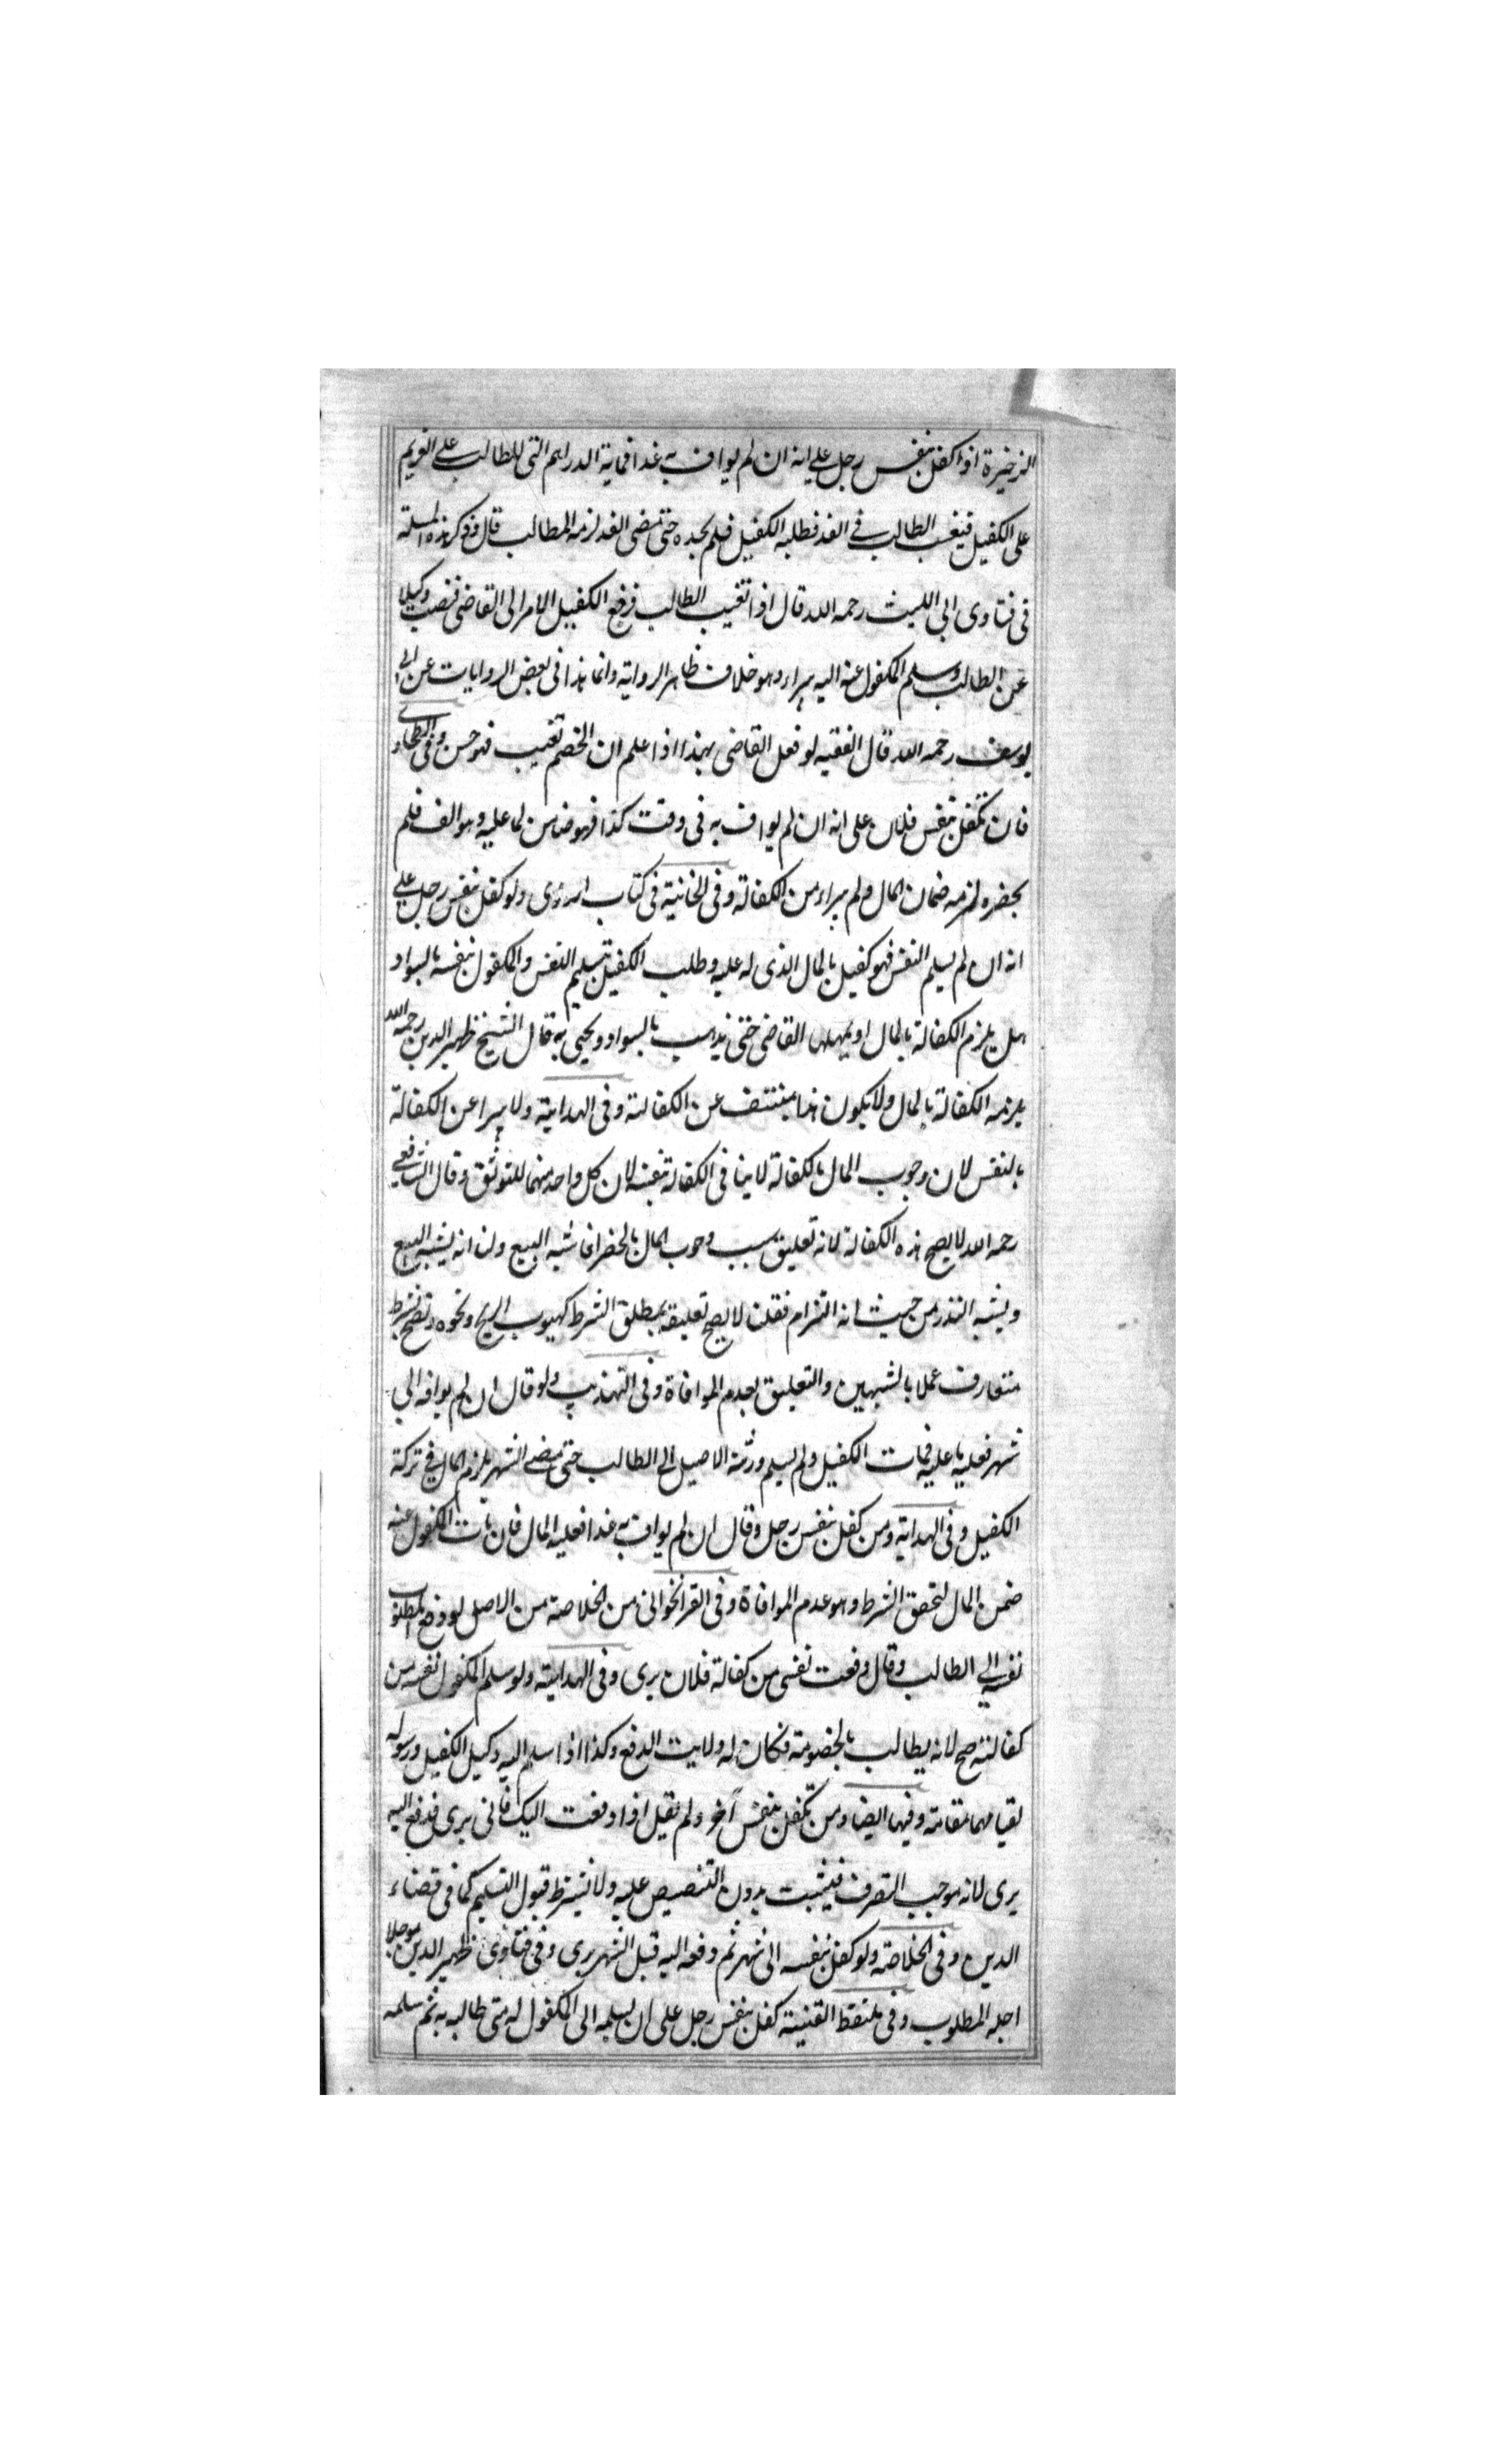 الذخيرة اذا كفل بنفس رجل على انه ان لم يواف به غدا فماية الدراهم التى للطالب على الغريم
على الكفيل فتغيب الطالب فى الغد فطلبه الكفيل فلم يجده حتى مضى الغد لزمه المطالب قال وذكر هذه المسئلة
فى فتاوى ابى الليث رحمه الله قال اذا تغيب الطالب فرفع الكفيل الامر الى القاضى فنصب وكيلا
عن الطالب وسلم المكفول عنه اليه يبراء وهو خلاف ظاهر الرواية وانما هذا فى بعض الروايات عن ابى
يوسف رحمه الله قال الفقيه لو فعل القاضى بهذا اذا علم ان الخصم تغيب فهو حسن وفى الطحاوى
فان تكفل بنفس فلان على انه ان لم يواف به فى وقت كذا فهو ضامن لما عليه وهو الف فلم
يحضره لزمه ضمان المال ولم يبراء من الكفالة وفى الخانية فى كتاب ولو كفل بنفس رجل على
انه ان لم يسلم النفس فهو كفيل بالمال الذى له عليه وطلب الكفيل تسليم النفس والمكفول بنفسه بالسواد
هل يلزم الكفالة بالمال او يمهله القاضى حتى يذهب بالسواد ويحيى به قال الشيخ ظهير الدين رحمه الله
يلزمه الكفالة بالمال ولا يكون هذا عن الكفالة وفى الهداية ولا يبرا عن الكفالة
بالنفس لان وجوب المال بالكفالة لاينافى الكفالة بنفسه لان كل واحد منهما للتوثق وقال الشافعى
رحمه الله لا يصح هذه الكفالة لانه تعليق سبب وجوب المال بالخطر فاشبه البيع ولنا انه يشبه البيع
ويشبه النذر من حيث انه التزام فقلنا لا يصح تعليقه بمطلق الشرط كهبوب الريح ونحوه وتصح بشرط
متعارف عملا بالشبهين والتعليق بعدم الموافاة وفى التهذيب ولو قال ان لم يوافه الى
شهر فعليه ما عليه فمات الكفيل ولم يسلم ورثة الاصيل الى الطالب حتى مضى الشهر يلزم المال فى تركة
الكفيل وفى الهداية ومن كفل بنفس رجل وقال ان لم يواف به غدا فعليه المال فان مات المكفول عنه
ضمن المال لتحقق الشرط وهو عدم الموافاة وفى القراخوانى من الخلاصة من الاصل لو دفع المطلوب
نفسه الى الطالب وقال دفعت نفسى من كفالة فلان برى وفى الهداية ولو سلم المكفول نفسه من
كفالته صح لانه يطالب بالخصومة فكان له ولايت الدفع وكذا اذا سلم اليه وكيل الكفيل ورسوله
لقيامهما مقامه وفيها ايضا ومن تكفل بنفس آخر ولم يقل اذا دفعت اليك فانى برى فدفع اليه
برى لانه موجب التصرف فيثبت بدون التنصيص عليه ولا يشترط قبول التسليم كما فى قضاء
الدين وفى الخلاصة ولو كفل بنفسه الى شهر ثم دفعه اليه قبل الشهر برى وفى فتاوى ظهير الدين موجلا
اجله المطلوب وفى ملتقط القنية كفل بنفس رجل على ان يسلمه الى المكفول له متى طالبه به ثم سلمه